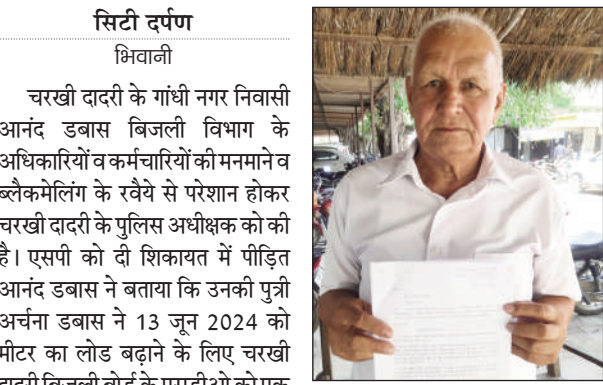 सिटी दर्पण
भिवानी
चरखी दादरी के गांधी नगर निवासी
आनंद डबास बिजली विभाग के
अधिकारियों व कर्मचारियों की मनमाने व
ब्लैकमेलिंग के रवैये से परेशान होकर
चरखी दादरी के पुलिस अधीक्षक को की
है। एसपी को दी शिकायत में पीड़ित
आनंद डबास ने बताया कि उनकी पुत्री
अर्चना डबास ने 13 जून 2024 को
मीटर का लोड बढ़ाने के लिए चरखी
दादरी बिजली बोर्ड के एसडीओ को एक